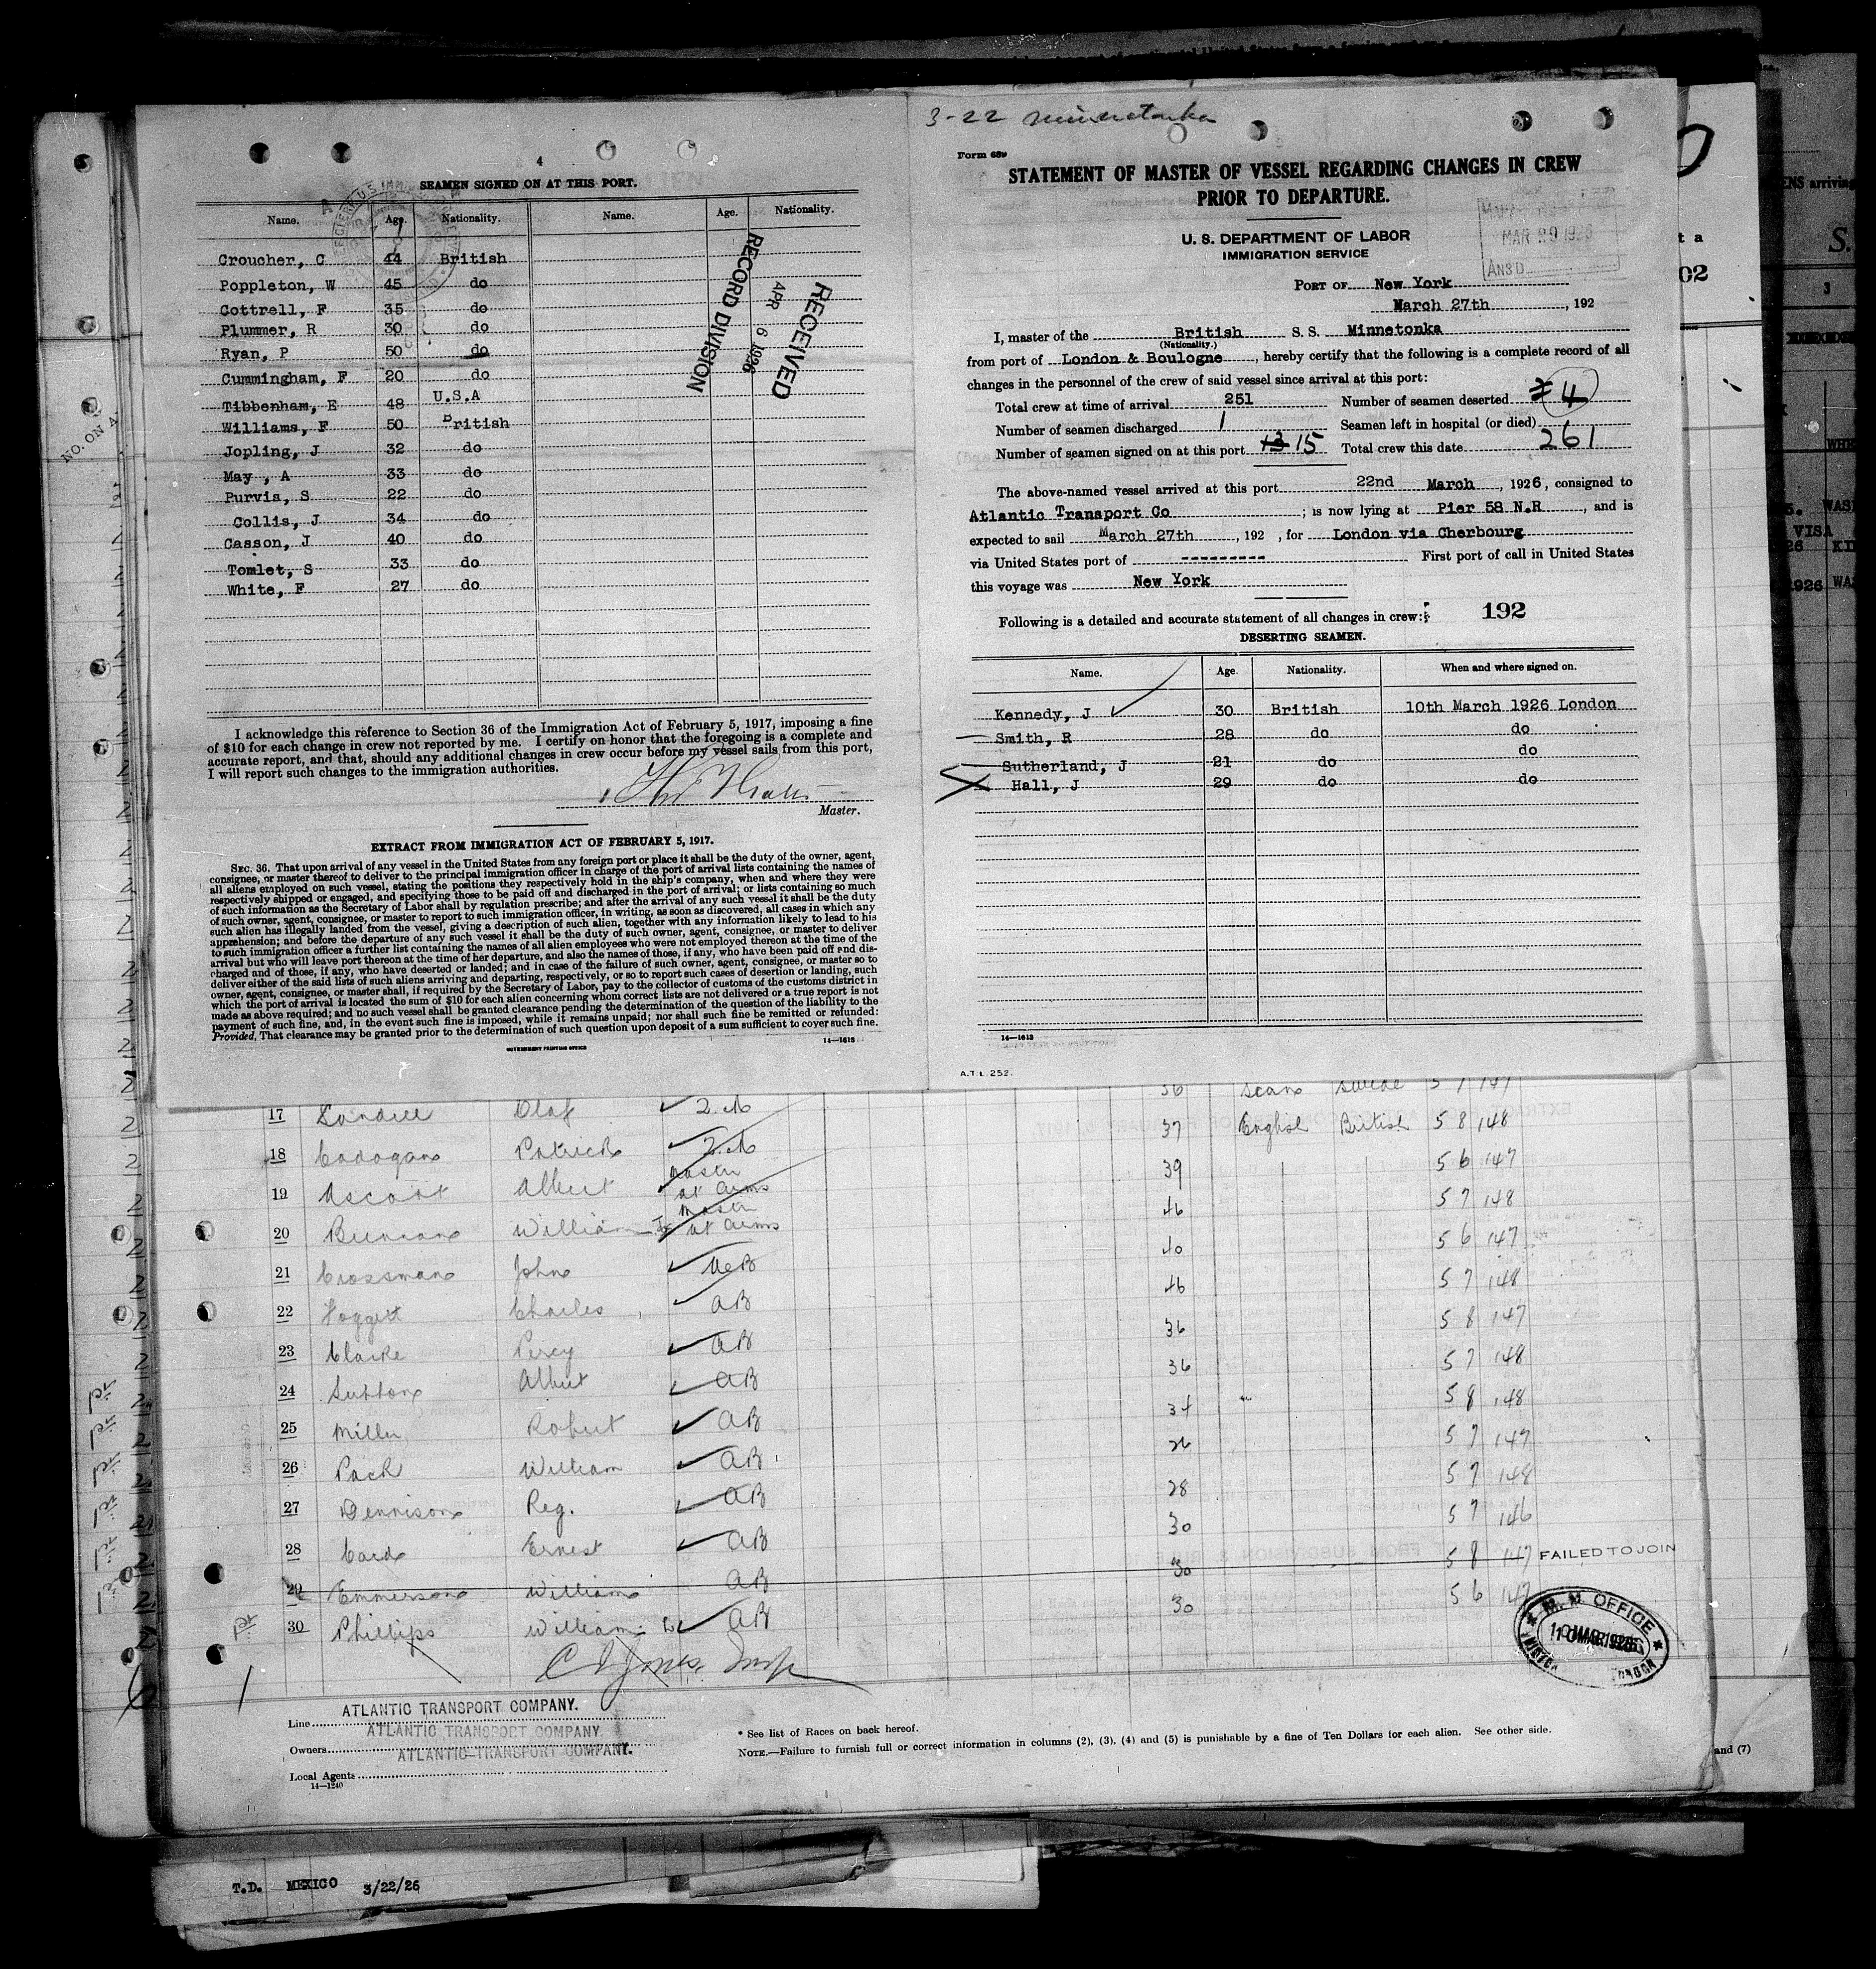 3-22 Minnetonka
4
SEAMEN SIGNED ON AT THIS PORT.
Name. Age. Nationality. Name. Age. Nationality.
Croucher, C 44 British
Poppleton, W 45 do
Cottrell, F 35 do
Plummer, R 30 do
Ryan, P 50 do
Cummingham, F 20 do
Tibbenham, E 48 U.S.A
Williams, F 50 British
Jopling, J 32 do
May , A 33 do
Purvis, S 22 do
Collis, J 34 do
Casson, J 40 do
Tomlet, S 33 do
White, F 27 do
RECEIVED
APR 6 1926
RECORD DIVISION
I acknowledge this reference to Section 36 of the Immigration Act of February 5, 1917, imposing a fine
of $10 for each change in crew not reported by me. I certify on honor that the foregoing is a complete and
accurate report, and that, should any additional changes in crew occur before my vessel sails from this port,
I will report such changes to the immigration authorities.
Master.
EXTRACT FROM IMMIGRATION ACT OF FEBRUARY 5, 1917.
SEC. 36. That upon arrival of any vessel in the United States from any foreign port or place it shall be the duty of the owner, agent,
consignee, or master thereof to deliver to the principal immigration officer in charge of the port of arrival lists containing the names of
all aliens employed on such vessel, stating the positions they respectively hold in the ship's company, when and where they were
respectively shipped or engaged, and specifying those to be paid off and discharged in the port of arrival; or lists containing so much
of such information as the Secretary of Labor shall by regulation prescribe; and after the arrival of any such vessel it shall be the duty
of such owner, agent, consignee, or master to report to such immigration officer, in writing, as soon as discovered, all cases in which any
such alien has illegally landed from the vessel, giving a description of such alien, together with any information likely to lead to his
apprehension; and before the departure of any such vessel it shall be the duty of such owner, agent, consignee, or master to deliver
to such immigration officer a further list containing the names of all alien employees who were not employed thereon at the time of the
arrival but who will leave port thereon at the time of her departure, and also the names of those, if any, who have been paid off and dis-
charged and of those, if any, who have deserted or landed; and in case of the failure of such owner, agent, consignee, or master so to
deliver either of the said lists of such aliens arriving and departing, respectively, or so to report such cases of desertion or landing, such
owner, agent, consignee, or master shall, if required by the Secretary of Labor, pay to the collector of customs of the customs district in
which the port of arrival is located the sum of $10 for each alien concerning whom correct lists are not delivered or a true report is not
made as above required; and no such vessel shall be granted clearance pending the determination of the question of the liability to the
payment of such fine, and, in the event such fine is imposed, while it remains unpaid; nor shall such fine be remitted or refunded:
Provided, That clearance may be granted prior to the determination of such question upon deposit of a sum sufficient to cover such fine.
GOVERNMENT PRINTING OFFICE 14—1613
Form 689
STATEMENT OF MASTER OF VESSEL REGARDING CHANGES IN CREW
PRIOR TO DEPARTURE.
U. S. DEPARTMENT OF LABOR
IMMIGRATION SERVICE
MAR 29 1926
ANS'D
PORT OF New York
March 27th , 192
I, master of the British S. S. Minnetonka
(Nationality.)
from port of London & Boulogne , hereby certify that the following is a complete record of all
changes in the personnel of the crew of said vessel since arrival at this port:
Total crew at time of arrival 251 Number of seamen deserted 4
Number of seamen discharged 1 Seamen left in hospital (or died)
Number of seamen signed on at this port 13 15 Total crew this date 261
The above-named vessel arrived at this port 22nd March , 1926, consigned to
Atlantic Transport Co ; is now lying at Pier 58 N.R , and is
expected to sail March 27th , 192 , for London via Cherbourg
via United States port of --------- First port of call in United States
this voyage was New York
Following is a detailed and accurate statement of all changes in crew:
192
DESERTING SEAMEN.
Name. Age. Nationality. When and where signed on.
Kennedy, J 30 British 10th March 1926 London
Smith, R 28 do do
Sutherland, J 21 do do
Hall, J 29 do do
14—1613
A.T.L. 252.
36 Scan Swede 5 7 147
17 Olaf 2.M 37 English British 5 8 148
18 Cadogan Patrick 2.M 39 5 6 147
19 Ascott Albert Master at Arms 46 5 7 148
20 Brennan William Master at Arms 40 5 6 147
21 Crossman John 46 5 7 148
22 Foggett Charles AB 36 5 8 147
23 Clarke Percy AB 36 5 7 148
24 Sutton Albert AB 34 5 8 148
25 Miller Robert AB 26 5 7 147
26 Pack William AB 28 5 7 148
27 Dennison Reg. AB 30 5 7 146
28 Card Ernest AB 30 5 8 147 FAILED TO JOIN
29 Emmerson William AB 30 5 6 147
30 Phillips William AB
M. M. OFFICE
10 MAR 1926
LONDON
Line ATLANTIC TRANSPORT COMPANY.
Owners ATLANTIC TRANSPORT COMPANY.
Local Agents ATLANTIC TRANSPORT COMPANY.
14—1240
* See list of Races on back hereof.
NOTE.—Failure to furnish full or correct information in columns (2), (3), (4) and (5) is punishable by a fine of Ten Dollars for each alien. See other side.
and (7)
NO. ON A
T.D. MEXICO 3/22/26